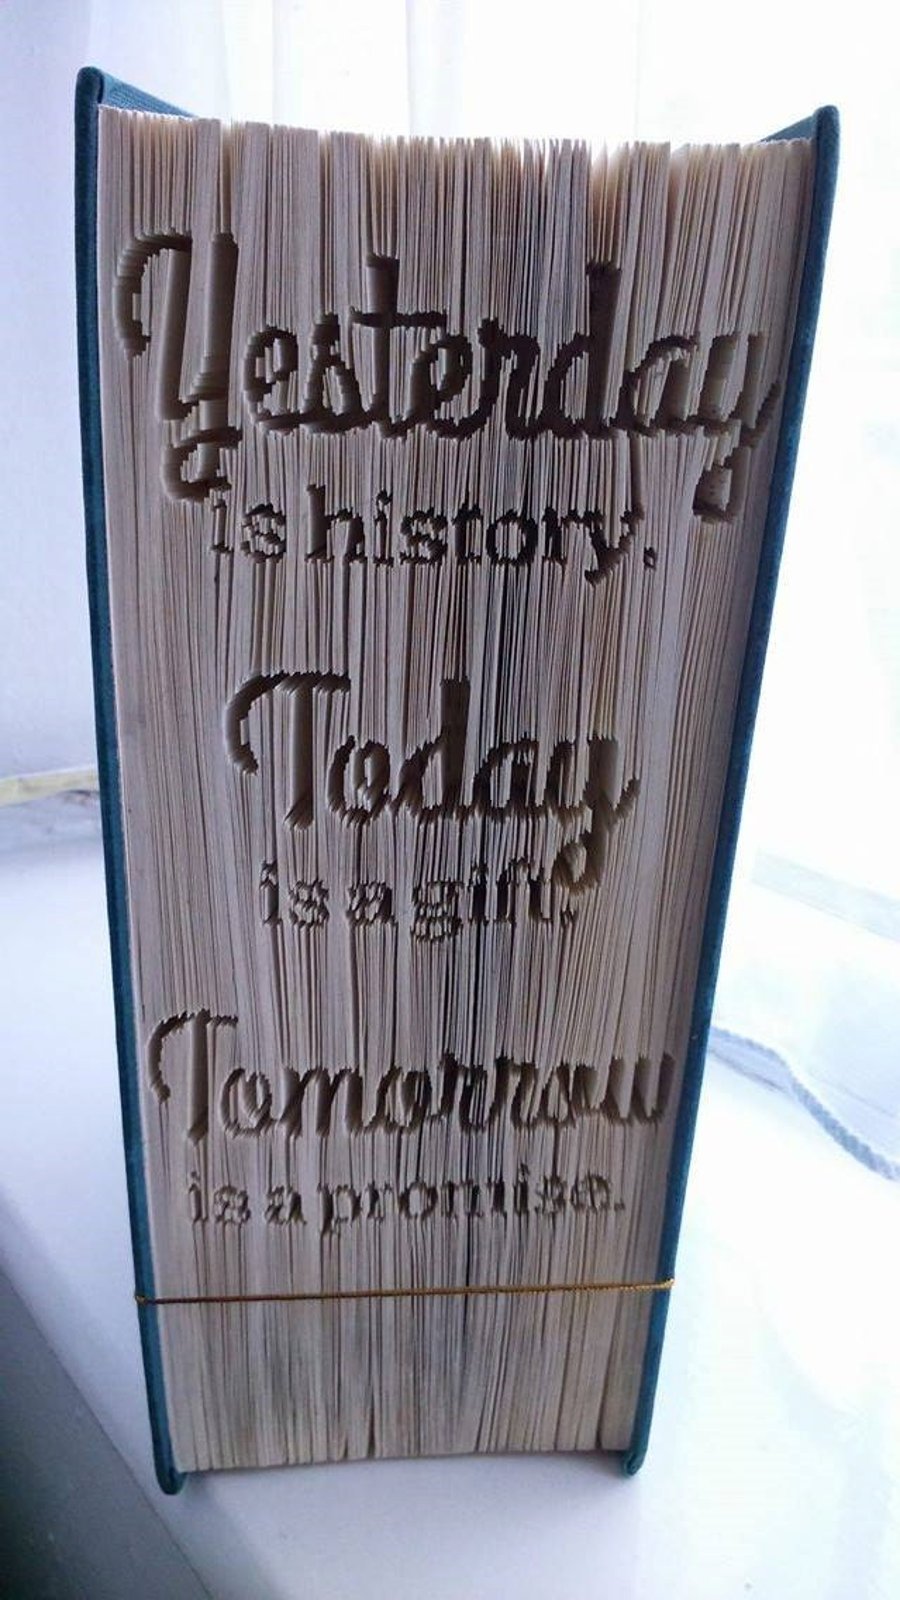 Yesterday
is history.
Today
is a gift.
Tomorrow
is a promise.